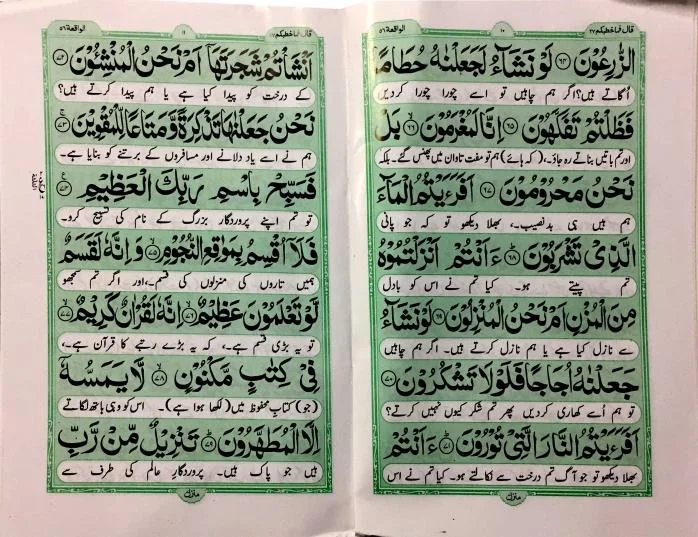 قال فما خطبکم ۲۷ ۱۰ الواقعة ۵۶
الزّٰرِعُوْنَ ﴿۶۴﴾ لَوْ نَشَآءُ لَجَعَلْنٰهُ حُطَامًا
اُگاتے ہیں؟ اگر ہم چاہیں تو اسے چورا چورا کردیں
فَظَلْتُمْ تَفَكَّهُوْنَ ﴿۶۵﴾ اِنَّا لَمُغْرَمُوْنَ ﴿۶۶﴾ بَلْ
اور تم باتیں بناتے رہ جاؤ۔، (کہ ہائے) ہم تو مفت تاوان میں پھنس گئے۔ بلکہ
نَحْنُ مَحْرُوْمُوْنَ ﴿۶۷﴾ اَفَرَءَيْتُمُ الْمَآءَ
ہم ہیں ہی بدنصیب۔، بھلا دیکھو تو کہ جو پانی
الَّذِيْ تَشْرَبُوْنَ ﴿۶۸﴾ ءَاَنْتُمْ اَنْزَلْتُمُوْهُ
تم پیتے ہو۔ کیا تم نے اس کو بادل
مِنَ الْمُزْنِ اَمْ نَحْنُ الْمُنْزِلُوْنَ ﴿۶۹﴾ لَوْ نَشَآءُ
سے نازل کیا ہے یا ہم نازل کرتے ہیں۔ اگر ہم چاہیں
جَعَلْنٰهُ اُجَاجًا فَلَوْلَا تَشْكُرُوْنَ ﴿۷۰﴾
تو ہم اُسے کھاری کردیں پھر تم شکر کیوں نہیں کرتے؟
اَفَرَءَيْتُمُ النَّارَ الَّتِيْ تُوْرُوْنَ ﴿۷۱﴾ ءَاَنْتُمْ
بھلا دیکھو تو جو آگ تم درخت سے نکالتے ہو۔ کیا تم نے اس
منزل
قال فما خطبکم ۲۷ ۱۱ الواقعة ۵۶
اَنْشَاْتُمْ شَجَرَتَهَآ اَمْ نَحْنُ الْمُنْشِـُٔوْنَ ﴿۷۲﴾
کے درخت کو پیدا کیا ہے یا ہم پیدا کرتے ہیں؟
نَحْنُ جَعَلْنٰهَا تَذْكِرَةً وَّ مَتَاعًا لِّلْمُقْوِيْنَ ﴿۷۳﴾
ہم نے اسے یاد دلانے اور مسافروں کے برتنے کو بنایا ہے۔
فَسَبِّحْ بِاسْمِ رَبِّكَ الْعَظِيْمِ ﴿۷۴﴾
تو تم اپنے پروردگار بزرگ کے نام کی تسبیح کرو۔
فَلَآ اُقْسِمُ بِمَوٰقِعِ النُّجُوْمِ ﴿۷۵﴾ وَ اِنَّهٗ لَقَسَمٌ
ہمیں تاروں کی منزلوں کی قسم۔، اور اگر تم سمجھو
لَّوْ تَعْلَمُوْنَ عَظِيْمٌ ﴿۷۶﴾ اِنَّهٗ لَقُرْاٰنٌ كَرِيْمٌ ﴿۷۷﴾
تو یہ بڑی قسم ہے۔، کہ یہ بڑے رتبے کا قرآن ہے۔،
فِيْ كِتٰبٍ مَّكْنُوْنٍ ﴿۷۸﴾ لَّا يَمَسُّهٗٓ
(جو) کتابِ محفوظ میں (لکھا ہوا ہے)۔ اس کو وہی ہاتھ لگاتے
اِلَّا الْمُطَهَّرُوْنَ ﴿۷۹﴾ تَنْزِيْلٌ مِّنْ رَّبِّ
ہیں جو پاک ہیں۔ پروردگارِ عالم کی طرف سے
منزل